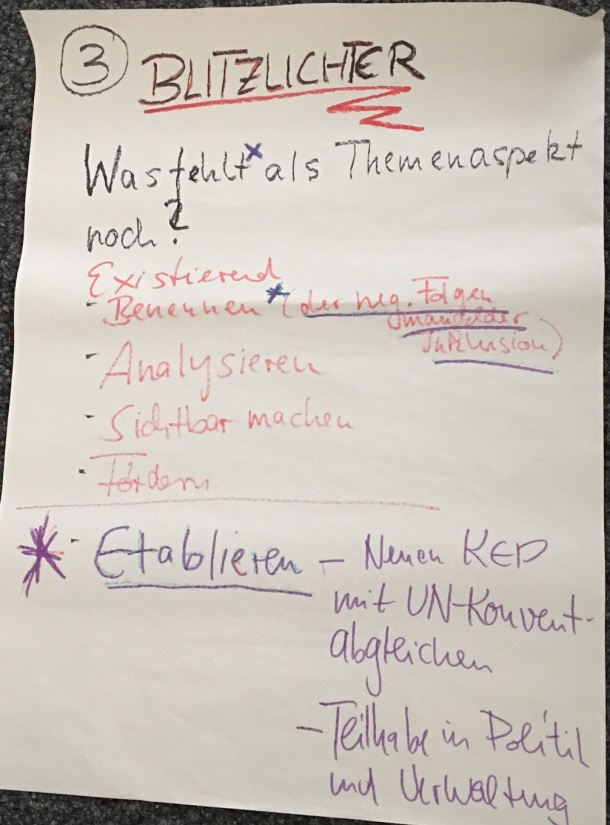 3 BLITZLICHTER
Was fehlt x als Themenaspekt
noch?
Existierend
- Benennen * (der neg. Folgen
mangelnder
Inklusion)
- Analysieren
- Sichtbar machen
- Fördern
* - Etablieren - Neuen KEP
mit UN-Konvent-
abgleichen
- Teilhabe in Politik
und Verwaltung